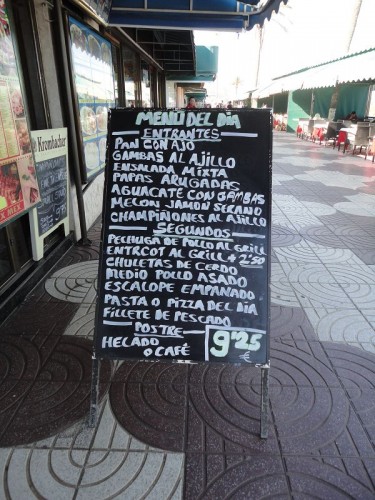 MENÚ DEL DÍA
ENTRANTES
PAN CON AJO
GAMBAS AL AJILLO
ENSALADA MIXTA
PAPAS ARUGADAS
AGUACATE CON GAMBAS
MELON JAMON SERANO
CHAMPIÑONES AL AJILLO
SEGUNDOS
PECHUGA DE POLLO AL GRILL
ENTRCOT AL GRILL + 2'50
CHULETAS DE CERDO
MEDIO POLLO ASADO
ESCALOPE EMPANADO
PASTA O PIZZA DEL DIA
FILLETE DE PESCADO
POSTRE
HELADO
O CAFÉ
9'25
€
Krombacher